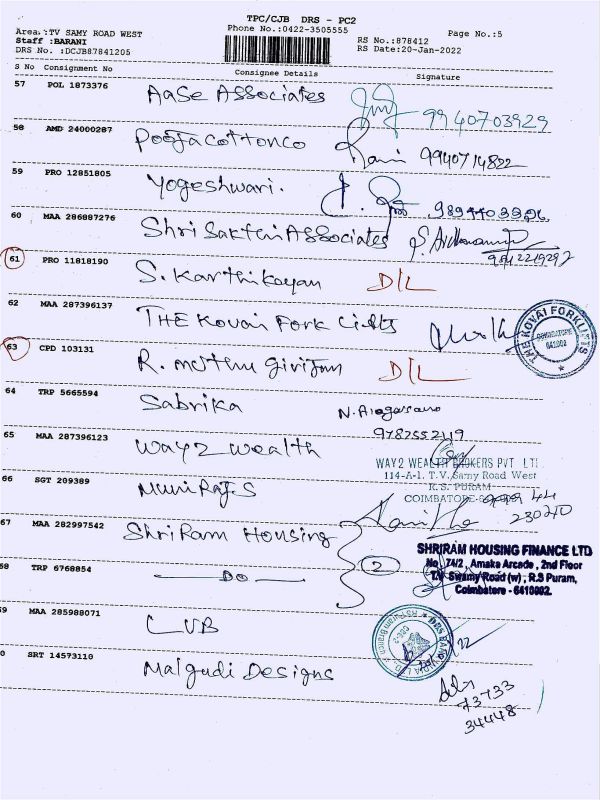 TPC/CJB DRS - PC2
Area.:TV SAMY ROAD WEST Phone No.:0422-3505555 Page No.:5
Staff :BARANI RS No.:878412
DRS No. :DCJB87841205 RS Date:20-Jan-2022
S No Consignment No Consignee Details Signature
57 POL 1873376 Aase Associates 9940703929
58 AMD 24000287 Pooja cottonco 9940714822
59 PRO 12851805 Yogeshwari.
60 MAA 286887276 Shri Sakthi Associates
61 PRO 11818190 S. Karthikeyan D/L
62 MAA 287396137 THE Kovai Fork Lifts
THE KOVAI FORKLIFTS
COIMBATORE
641002
63 CPD 103131 R. muthu girijan D/L
64 TRP 5665594 Sabrika
9787552119
65 MAA 287396123 way2 wealth
WAY2 WEALTH BROKERS PVT LTD
114-A-1. T.V.Samy Road West
R.S. PURAM,
COIMBATORE
66 SGT 209389 Muniraj.S
67 MAA 282997542 ShriRam Housing
SHRIRAM HOUSING FINANCE LTD
No. 74/2, Amaka Arcade, 2nd Floor
T.V Swamy Road (w), R.S Puram,
Coimbatore - 6410002.
68 TRP 6768854 Do 2
69 MAA 285988071 LVB
70 SRT 14573110 Malgudi Designs
73733
34448